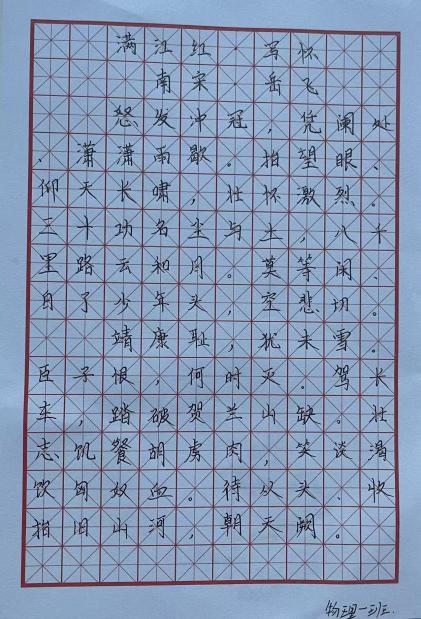 满江红·写怀
南宋·岳飞
怒发冲冠,凭阑处
、潇潇雨歇。抬望眼、
仰天长啸,壮怀激烈。
三十功名尘与土,八千
里路云和月。莫等闲、
白了少年头,空悲切。
靖康耻,犹未雪。
臣子恨,何时灭。驾长
车,踏破贺兰山缺。壮
志饥餐胡虏肉,笑谈渴
饮匈奴血。待从头、收
拾旧山河,朝天阙。
物理一班